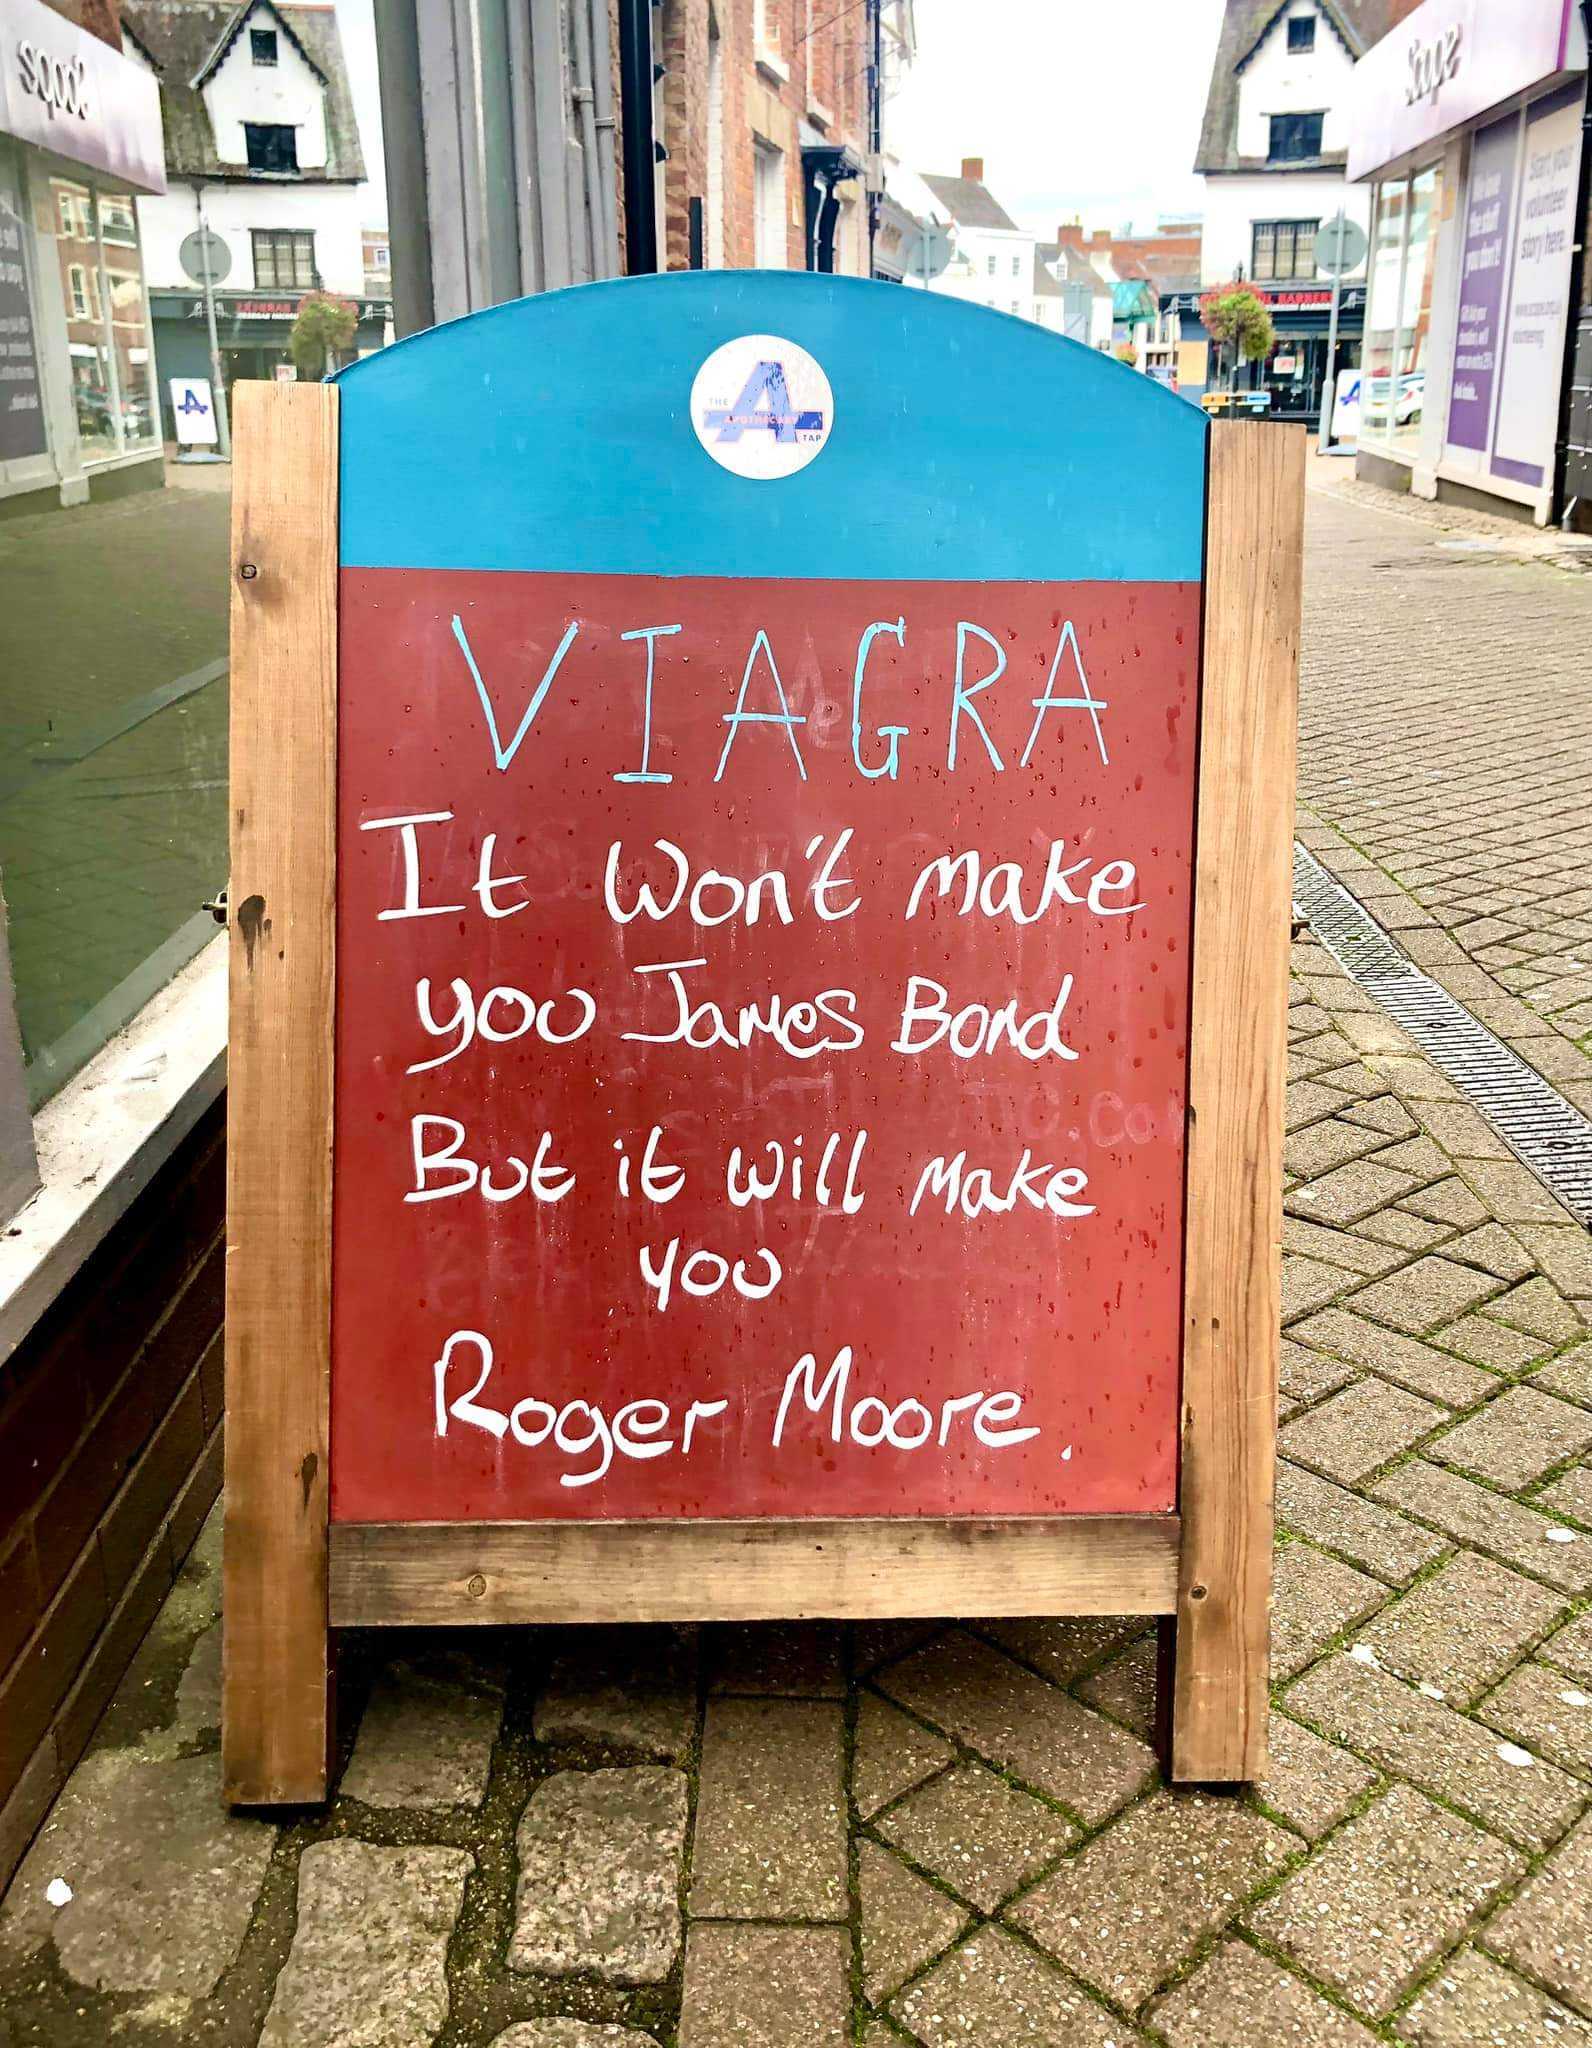 scope
THE
APOTHECARY
TAP
VIAGRA
It won't make
you James Bond
But it will make
you
Roger Moore.
Start your
volunteer
story here